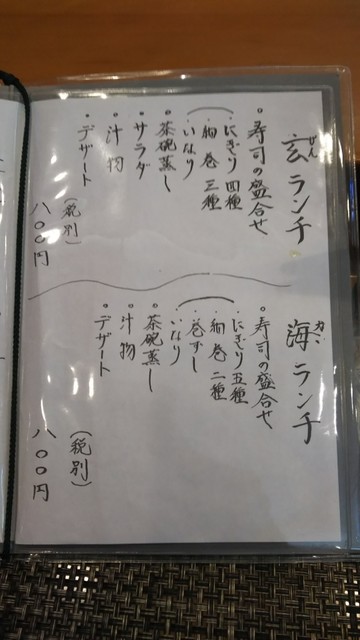 玄ランチ
げん
。寿司の盛合せ
・にぎり 四種
・細巻 三種
・いなり
。茶碗蒸し
。サラダ
。汁物
。デザート
(税別)
八〇〇円
海ランチ
カイ
。寿司の盛合せ
・にぎり 五種
・細巻 二種
・巻ずし
・いなり
。茶碗蒸し
。汁物
。デザート
(税別)
八〇〇円